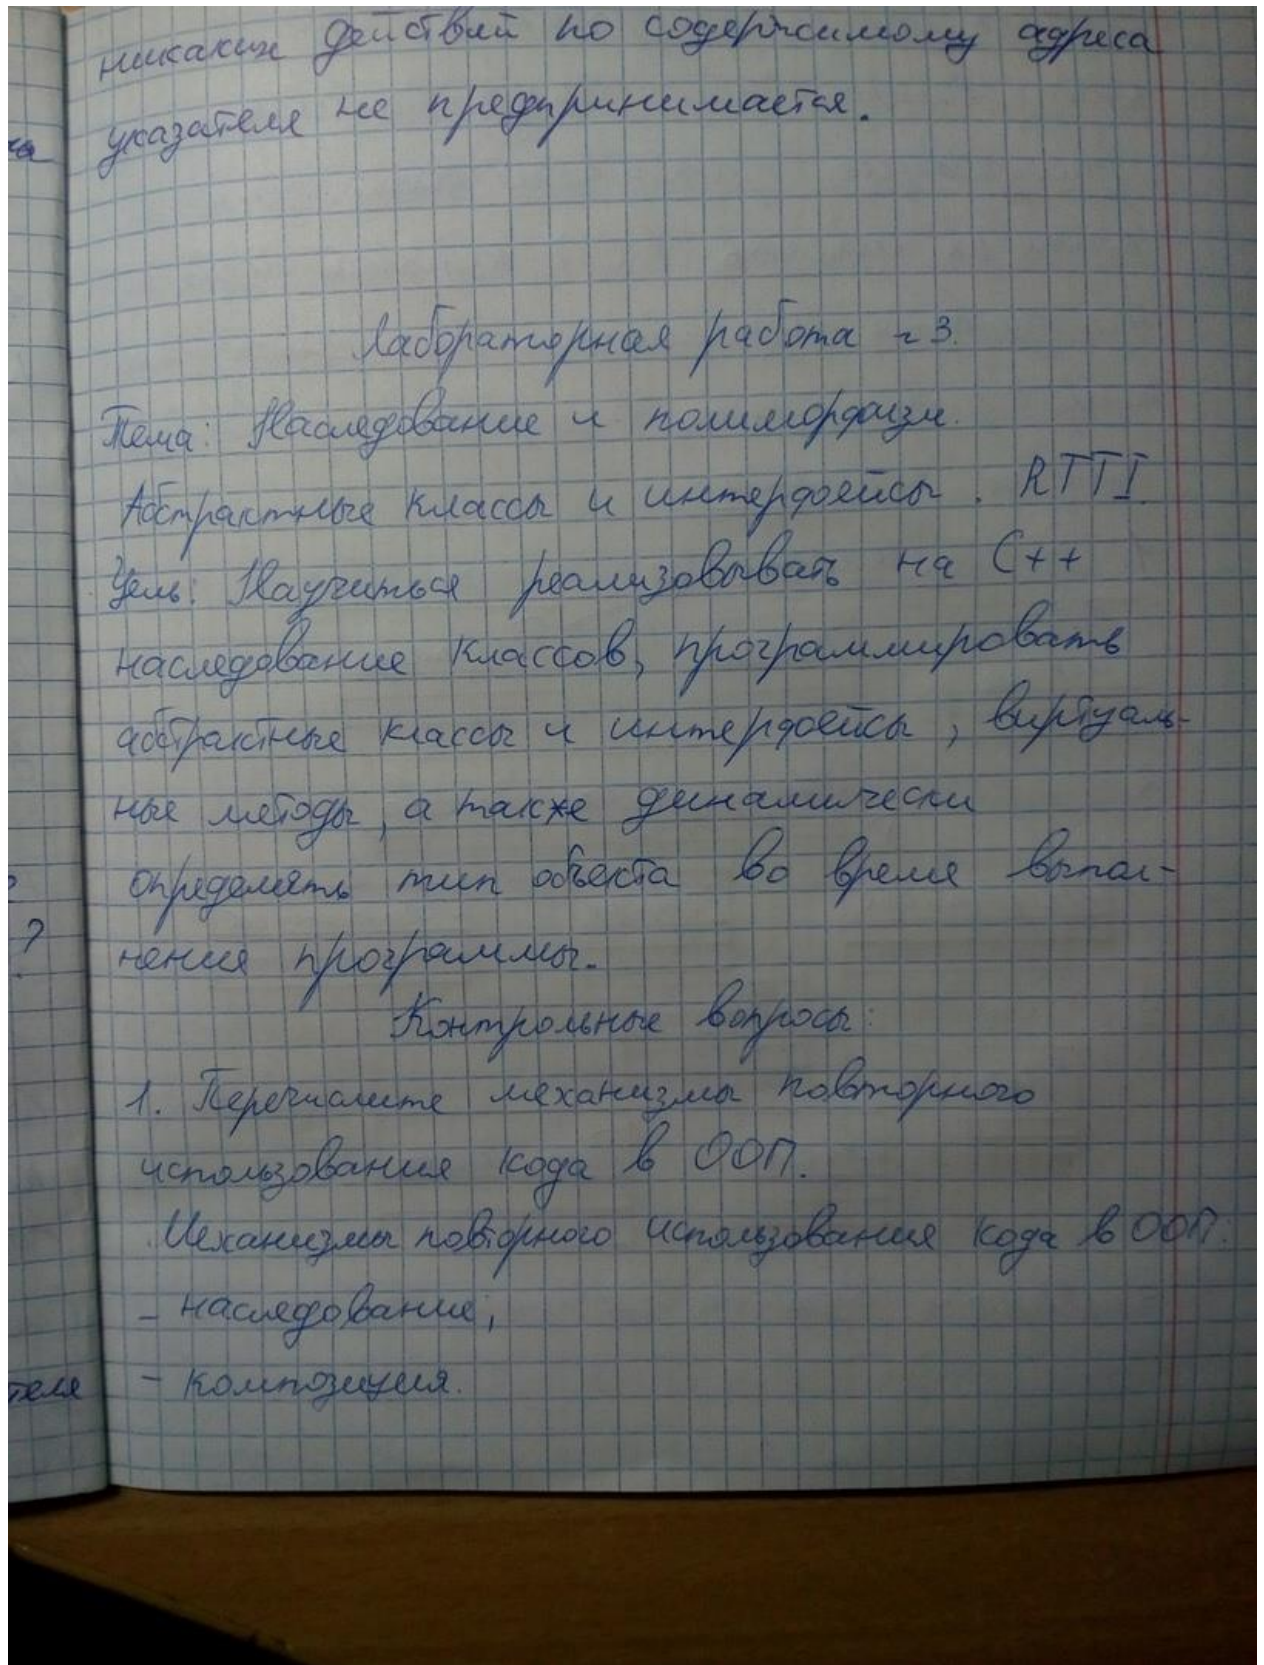 никаких действий по содержимому адреса
указателя не предпринимается.
Лабораторная работа №3.
Тема: Наследование и полиморфизм.
Абстрактные классы и интерфейсы. RTTI.
Цель: Научиться реализовывать на C++
наследование классов, программировать
абстрактные классы и интерфейсы, виртуаль-
ные методы, а также динамически
определять тип объекта во время выпол-
нения программы.
Контрольные вопросы:
1. Перечислите механизмы повторного
использования кода в ООП.
Механизмы повторного использования кода в ООП:
- наследование;
- композиция.